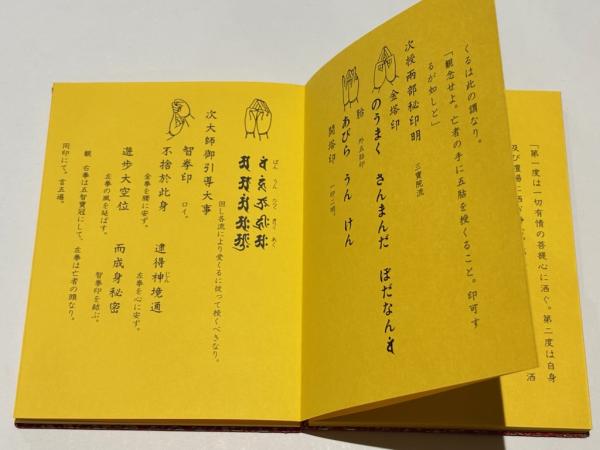 「第一度は一切有情の菩提心に洒ぐ。第二度は自身
及び壇場に洒
洒
くるは此の謂なり。
「観念せよ。亡者の手に五鈷を授くること。印可す
るが如しと」
次授兩部秘印明 三寳院流
金塔印
のうまく さんまんだ ぼだなん
外五鈷印
あびら うん けん
開塔印 一印二明。
ばん うん たらく きりく あく
但し各流により愛くるに従って授くべきなり。
次大師御引導大事
智拳印 ロイ。
不捨於此身 逮得神境通
じん
金拳を腰に安ず。 左拳を心に安ず。
遊歩大空位 而成身秘密
左拳の風を延ばす。 智拳印を結ぶ。
観 右拳は五智寳冠にして、左拳は亡者の頭なり。
同印にて。言五遍。